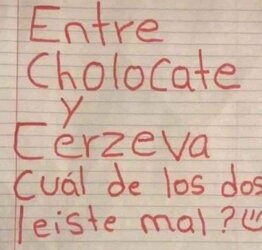 Entre
Cholocate
y
Cerzeva
Cuál de los dos
leiste mal?